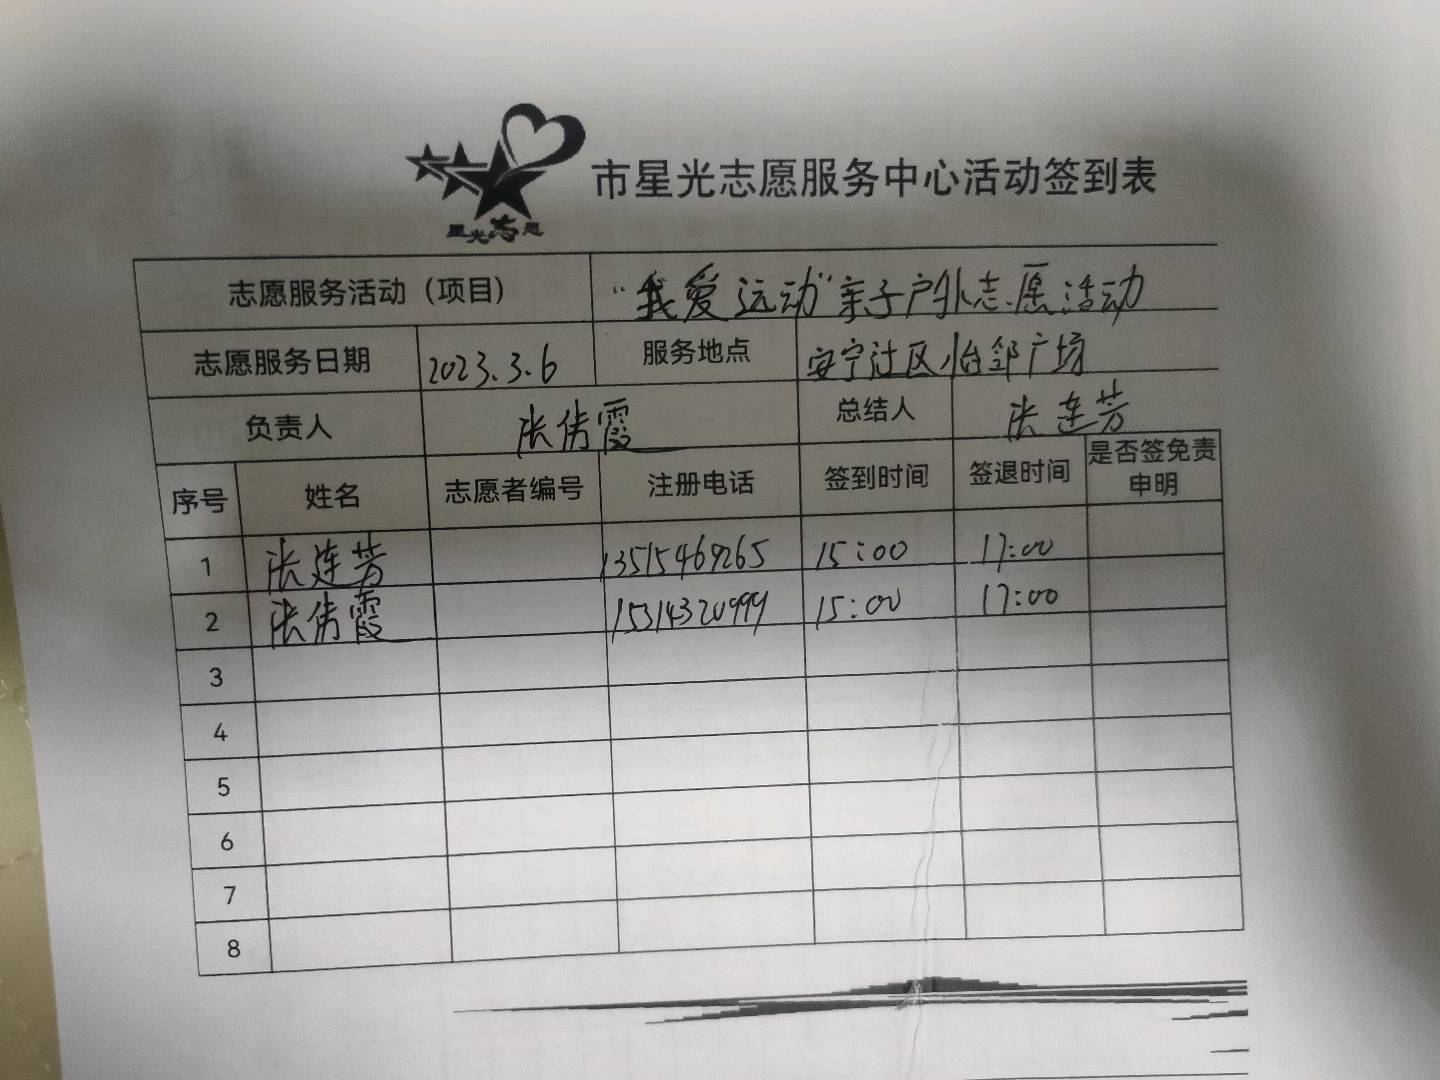 星光志愿
市星光志愿服务中心活动签到表
志愿服务活动（项目） “我爱运动”亲子户外志愿活动
志愿服务日期 2023.3.6 服务地点 安宁社区怡邻广场
负责人 张倩霞 总结人 张连芳
序号 姓名 志愿者编号 注册电话 签到时间 签退时间 是否签免责申明
1 张连芳 13515469265 15:00 17:00
2 张倩霞 15314320999 15:00 17:00
3
4
5
6
7
8